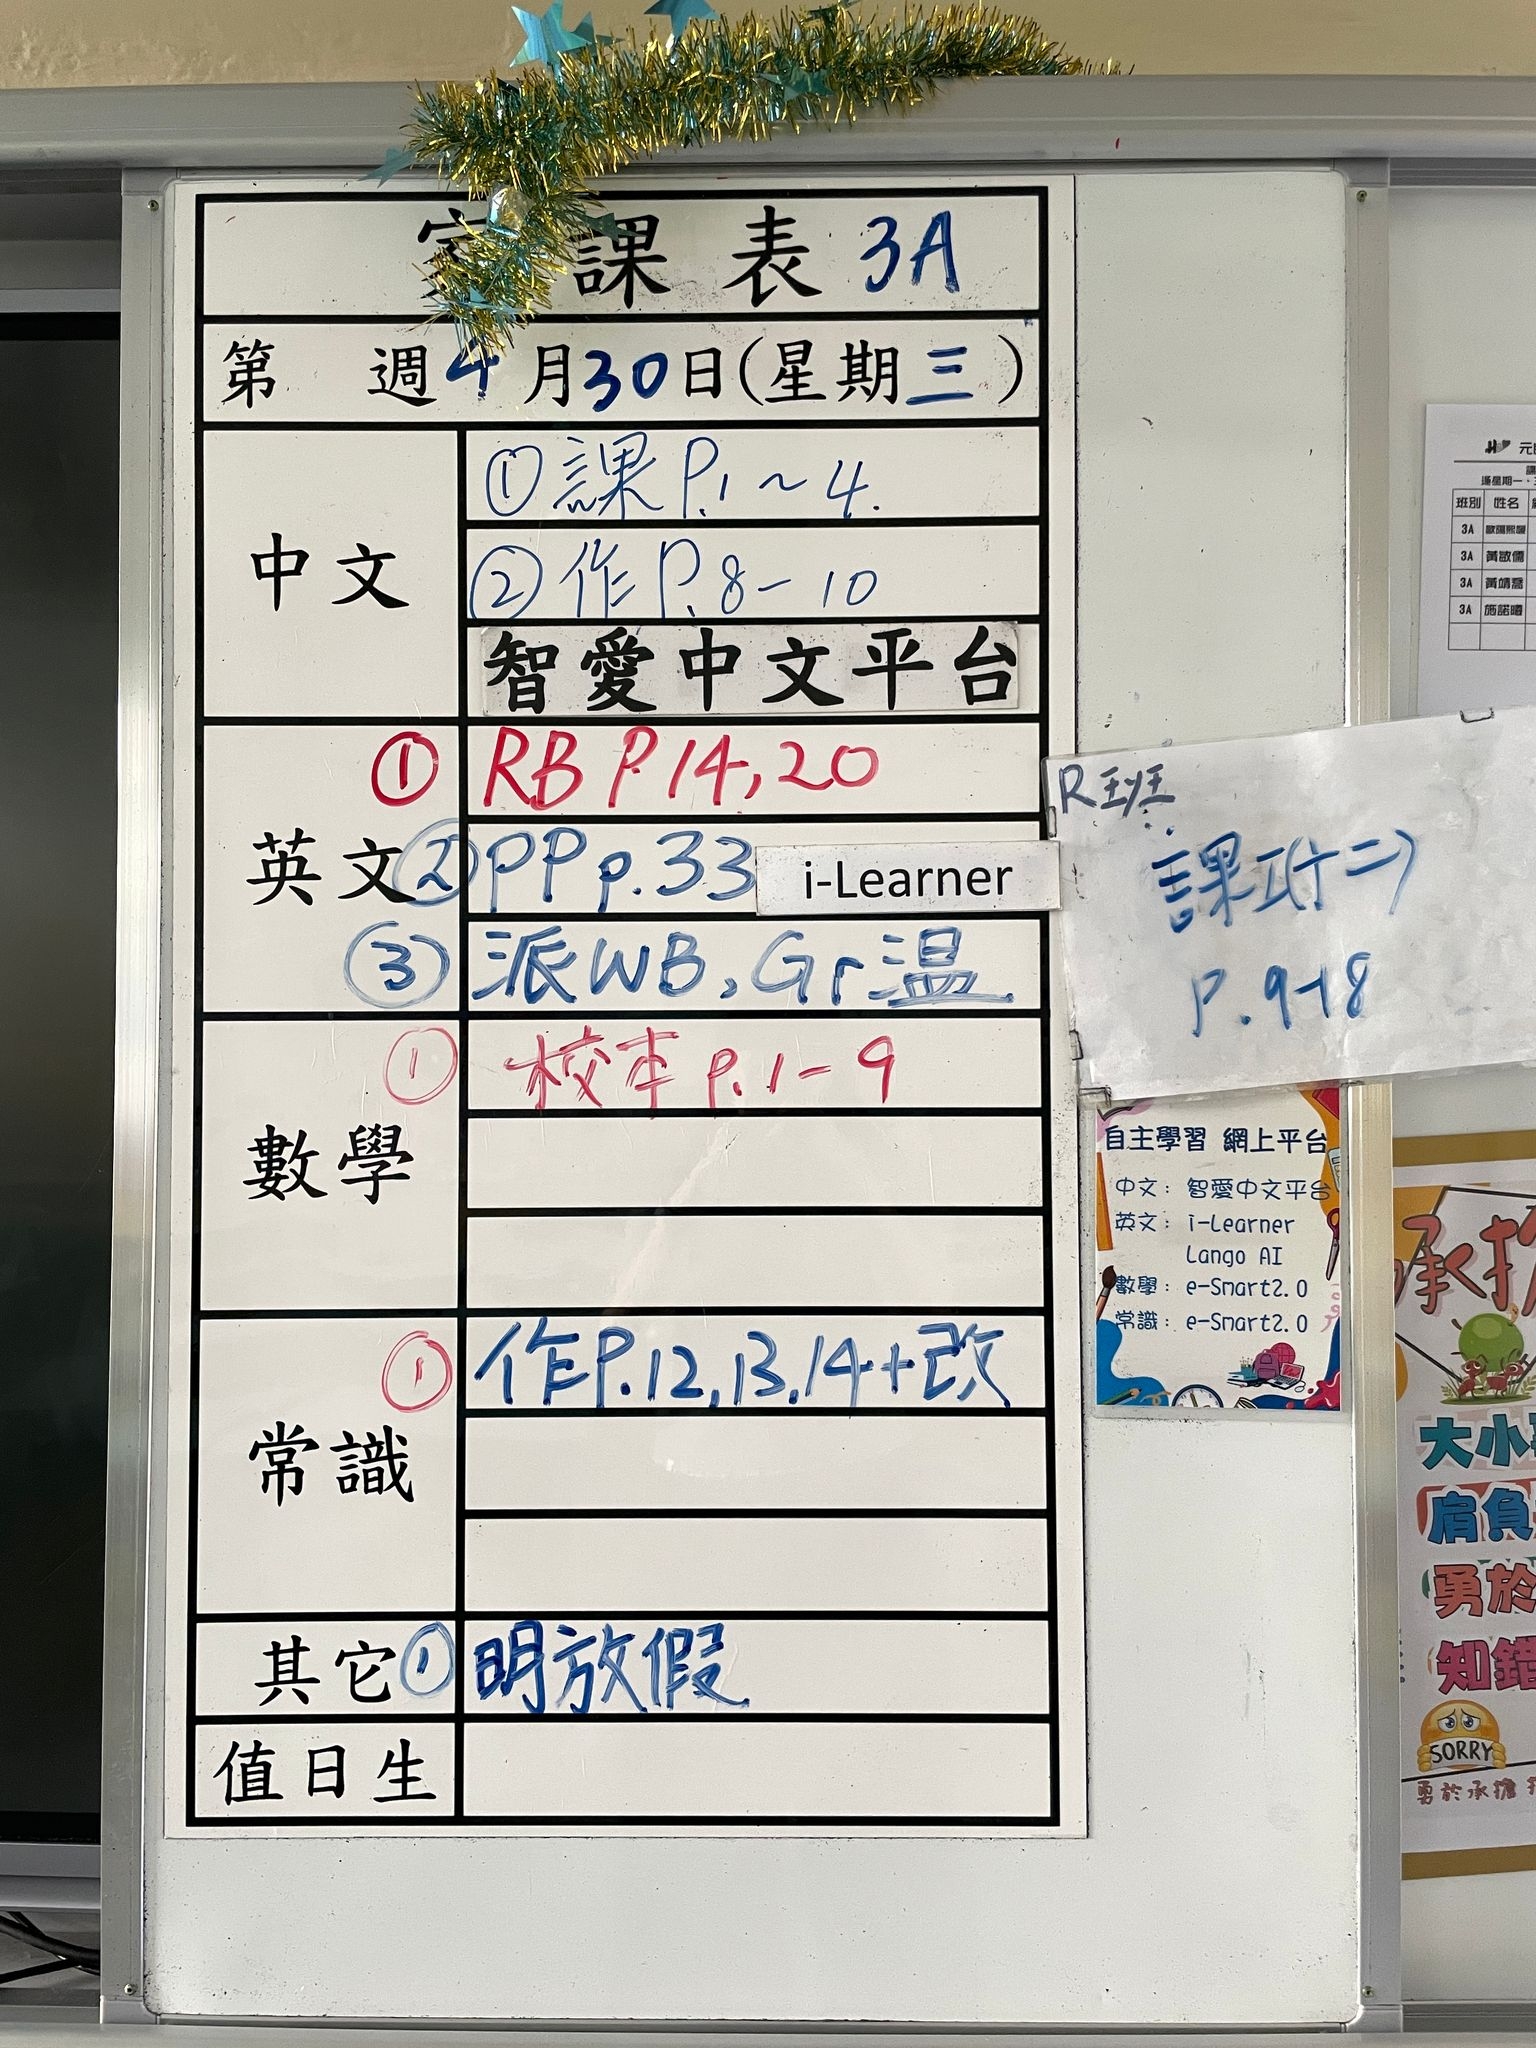 家課表 3A
第 週 4月30日(星期三)
中文
①課P.1~4.
②作P.8-10
智愛中文平台
英文
① RB P.14,20
② PP p.33
i-Learner
③ 派WB, Gr温
數學
① 校本 p.1-9
常識
① 作P.12,13,14+改
其它
① 明放假
值日生
R班
課工(十二)
P.9-18
自主學習 網上平台
中文: 智愛中文平台
英文: i-Learner
Lango AI
數學: e-Smart2.0
常識: e-Smart2.0
班別 姓名
3A
3A 黃敏儒
3A 黃靖喬
3A
承擔
大小
肩負
勇於
知錯
SORRY
勇於承擔